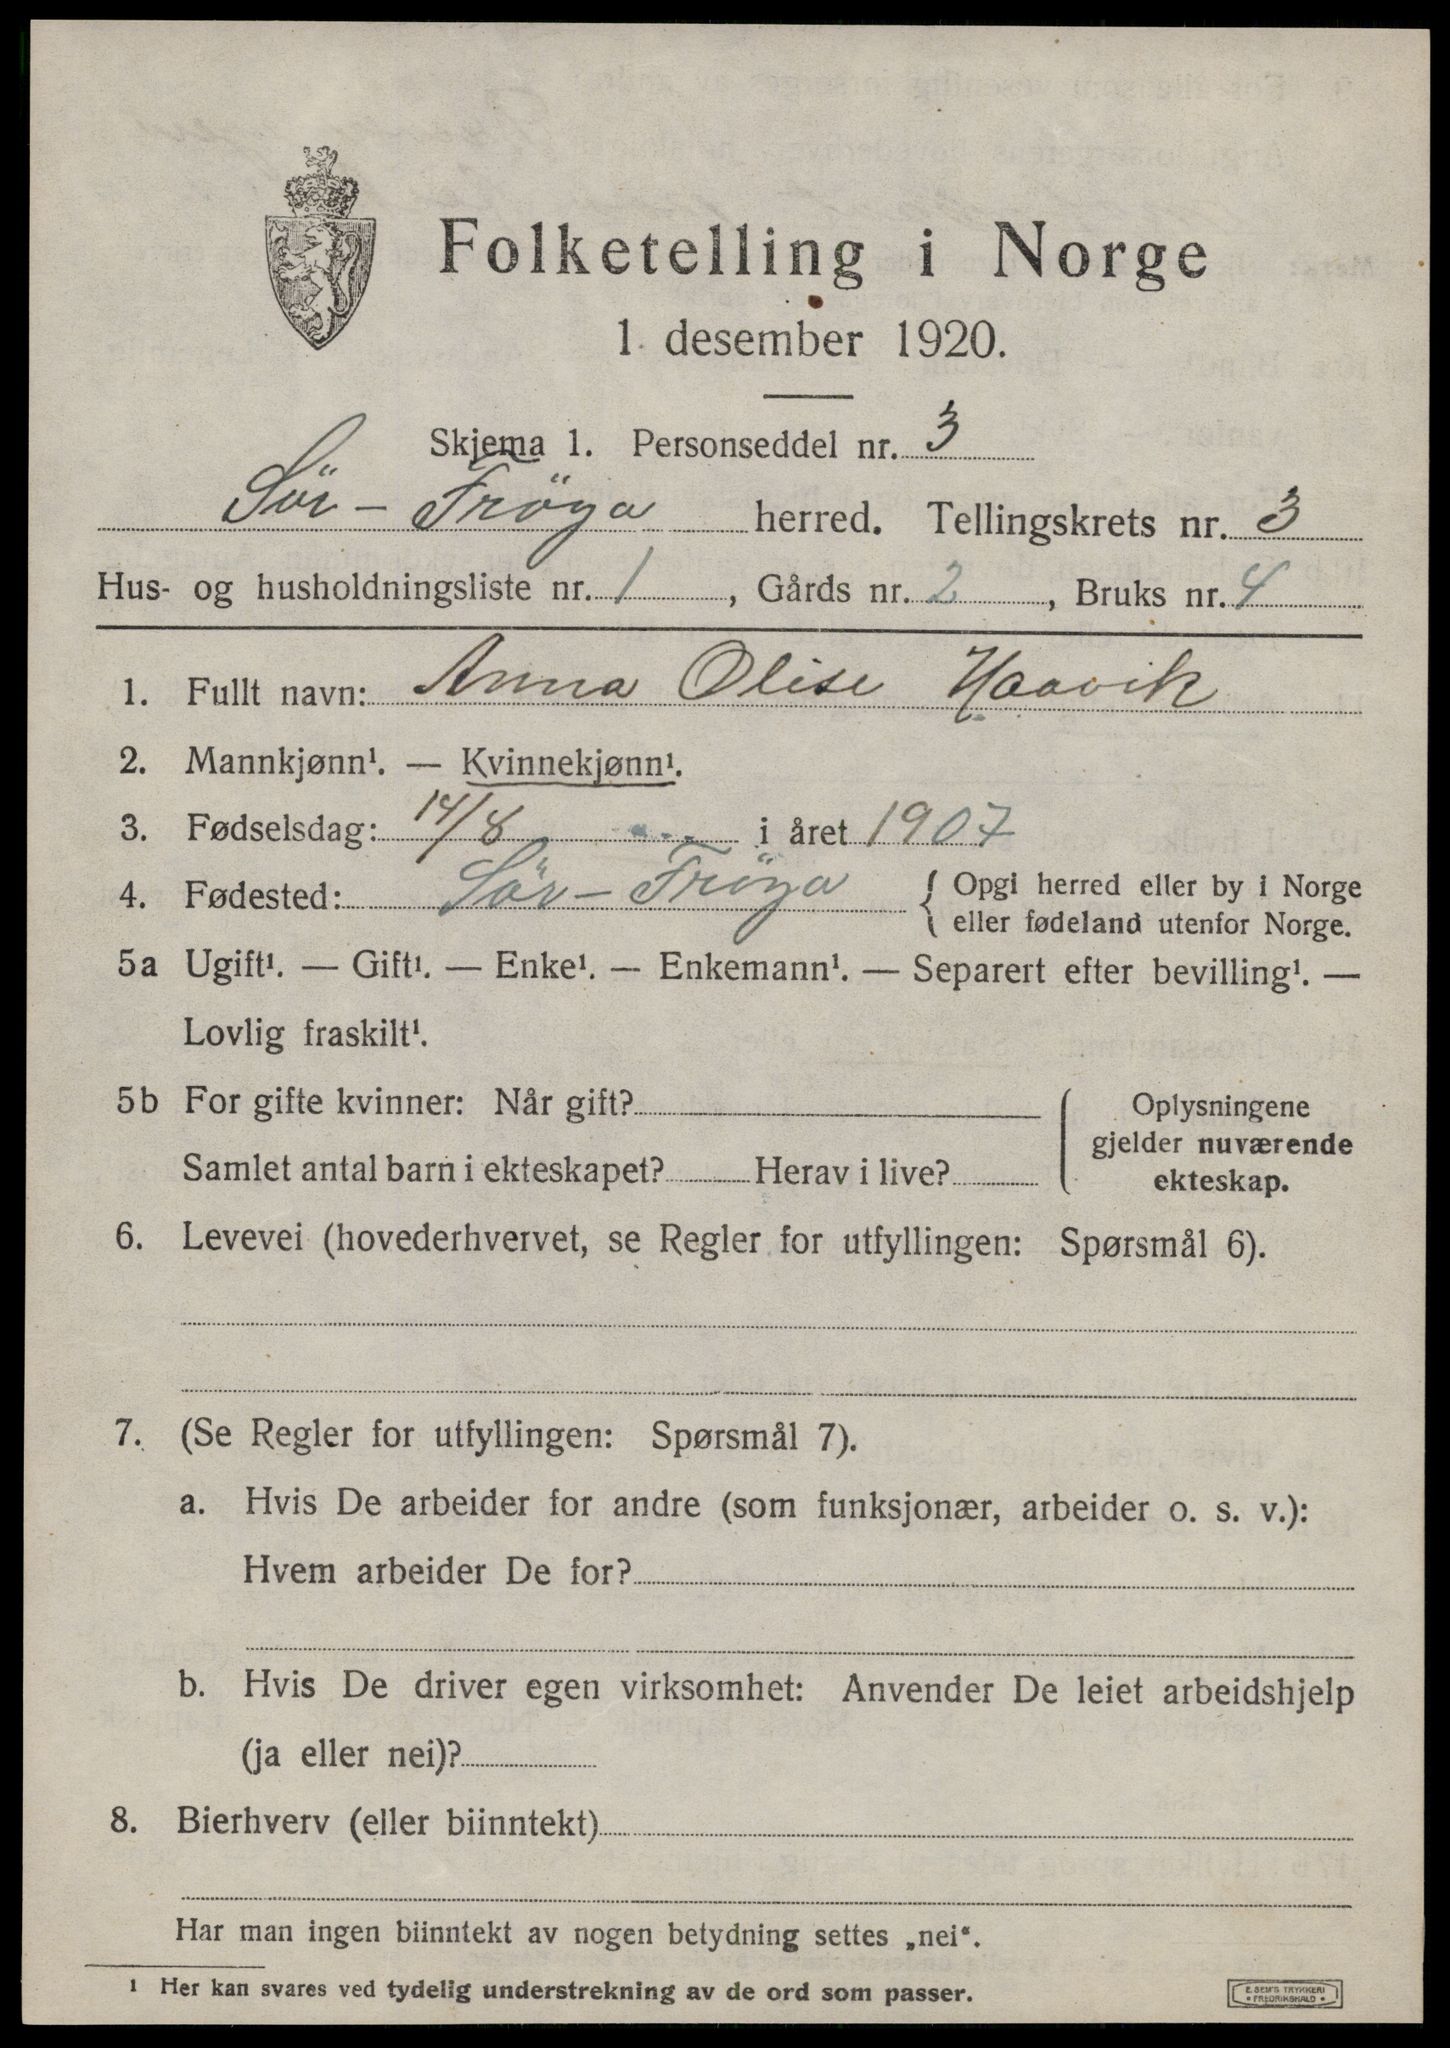 Folketelling i Norge
1. desember 1920.
Skjema 1. Personseddel nr. 3
Sör-Fröya herred. Tellingskrets nr. 3
Hus- og husholdningsliste nr. 1, Gårds nr. 2, Bruks nr. 4
1. Fullt navn: Anna Olise Haavik
2. Mannkjønn¹. — Kvinnekjønn¹.
3. Fødselsdag: 14/8 i året 1907
4. Fødested: Sör-Fröya { Opgi herred eller by i Norge
eller fødeland utenfor Norge.
5a Ugift¹. — Gift¹. — Enke¹. — Enkemann¹. — Separert efter bevilling¹. —
Lovlig fraskilt¹.
5b For gifte kvinner: Når gift?
Samlet antal barn i ekteskapet? Herav i live?
Oplysningene
gjelder nuværende
ekteskap.
6. Levevei (hovederhvervet, se Regler for utfyllingen: Spørsmål 6).
7. (Se Regler for utfyllingen: Spørsmål 7).
a. Hvis De arbeider for andre (som funksjonær, arbeider o. s. v.):
Hvem arbeider De for?
b. Hvis De driver egen virksomhet: Anvender De leiet arbeidshjelp
(ja eller nei)?
8. Bierhverv (eller biinntekt)
Har man ingen biinntekt av nogen betydning settes „nei“.
1 Her kan svares ved tydelig understrekning av de ord som passer.
E. SEM'S TRYKKERI
• FREDRIKSHALD •